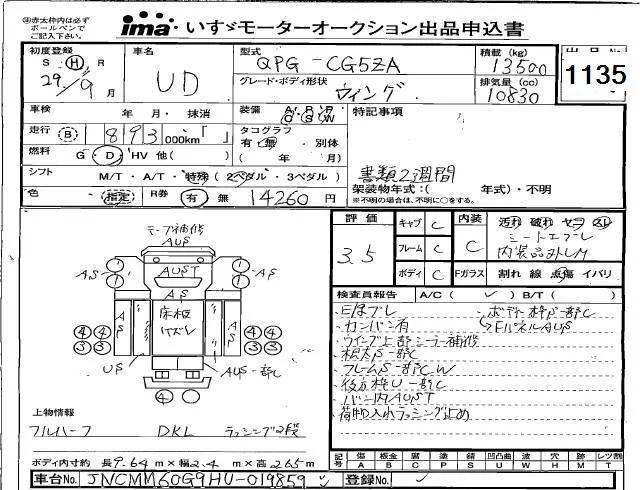 ※赤太枠内は必ず
ボールペンで
ご記入下さい。
ima いすゞモーターオークション出品申込書
初度登録 S H R 29年 9月
車名 UD
型式 QPG - CG5ZA
グレード・ボディ形状 ウィング
積載 (kg) 13500
排気量 (cc) 10830
出品No
1135
車検 年 月・抹消
走行 B 893 000km
燃料 G D HV 他( )
装備 AC PS PW
タコグラフ 有・無・別体
( 年 月)
特記事項
書類2週間
架装物年式:( 年式)・不明
※不明の場合は、不明に○をする。
シフト M/T・A/T・特殊(2ペダル・3ペダル)
色 指定 R券 有 無 14260 円
評価 3.5
キャブ C
フレーム C
ボディ C
内装 C
Fガラス
汚れ 破れ ヤラ スレ
シートエプレ
内装品外しM
割れ 線 点傷 イバリ
検査員報告 A/C( ✓ ) B/T( )
カンバン有
ウイング上部シーラー補修
根太P一部C
フレームS一部CW
後方枠U一部C
バン内AUST
荷物入れラッシング止め
ボデー枠P一部C
→FパネルAUS
テープ補修
AUS
AS
AUST
AP
床板
US
AUS一部C
上物情報
フルハーフ DKL ラッシング2段
ボディ内寸約 長9.64 m×幅2.4 m×高2.65 m
記号 傷 A 板金 B 腐 C 塗 P 錆 S 凹凸曲 U 波 W 穴 H 跡 M レツ割 T
車台No. JNCMM60G9HU-019859
登録No.